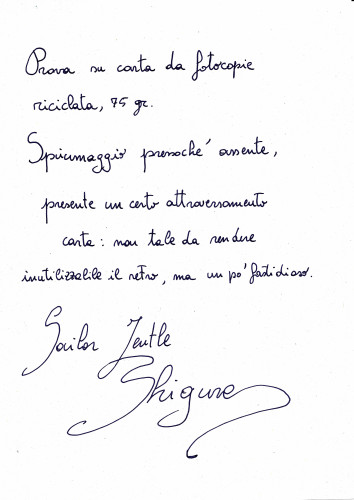 Prova su carta da fotocopie
riciclata, 75 gr.
Spiumaggio pressoché assente,
presente un certo attraversamento
carta: non tale da rendere
inutilizzabile il retro, ma un po' fastidioso.
Sailor Jentle
Shigure